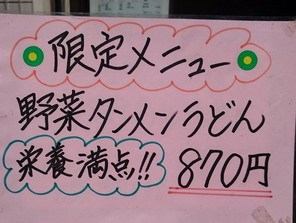 限定メニュー
野菜タンメンうどん
栄養満点!! 870円